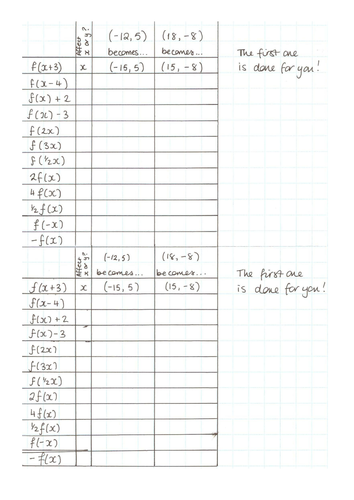 Affect x or y? (-12, 5) becomes... (18, -8) becomes...
The first one
is done for you!
f(x+3) x (-15, 5) (15, -8)
f(x-4)
f(x) + 2
f(x) - 3
f(2x)
f(3x)
f(½x)
2f(x)
4f(x)
½f(x)
f(-x)
-f(x)
Affect x or y? (-12, 5) becomes... (18, -8) becomes...
The first one
is done for you!
f(x+3) x (-15, 5) (15, -8)
f(x-4)
f(x) + 2
f(x) - 3
f(2x)
f(3x)
f(½x)
2f(x)
4f(x)
½f(x)
f(-x)
-f(x)